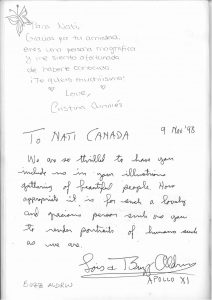 Para Nati:
Gracias por tu amistad,
eres una persona magnífica
y me siento afortunada
de haberte conocido.
¡Te quiero muchísimo!
Love,
Cristina
9 Nov '98
To NATI CANADA
We are so thrilled to have you
include us in your illustrious
gathering of beautiful people. How
appropriate it is for such a lovely
and gracious person such as you
to render portraits of humans such
as we are.
Lois & Buzz Aldrin
APOLLO XI
BUZZ ALDRIN